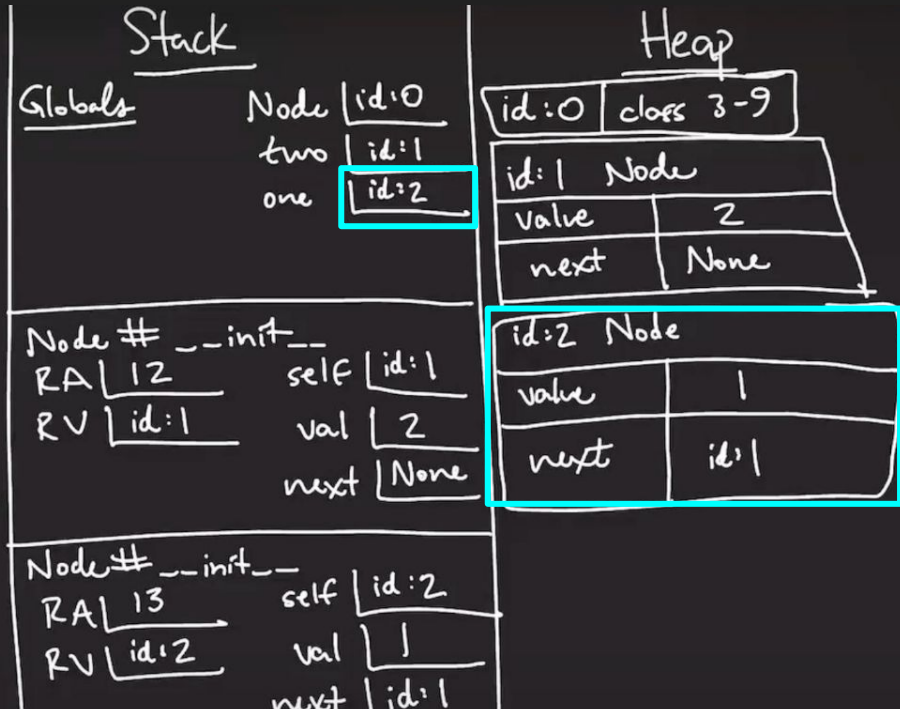 Stack
Globals
Node id:0
two id:1
one id:2
Node # __init__
RA 12
RV id:1
self id:1
val 2
next None
Node # __init__
RA 13
RV id:2
self id:2
val 1
next id:1
Heap
id:0 class 3-9
id:1 Node
value 2
next None
id:2 Node
value 1
next id:1